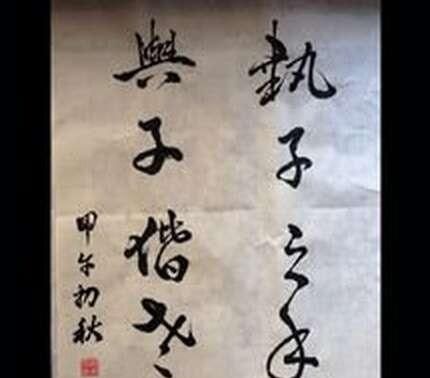 執子之手
與子偕老
甲午初秋